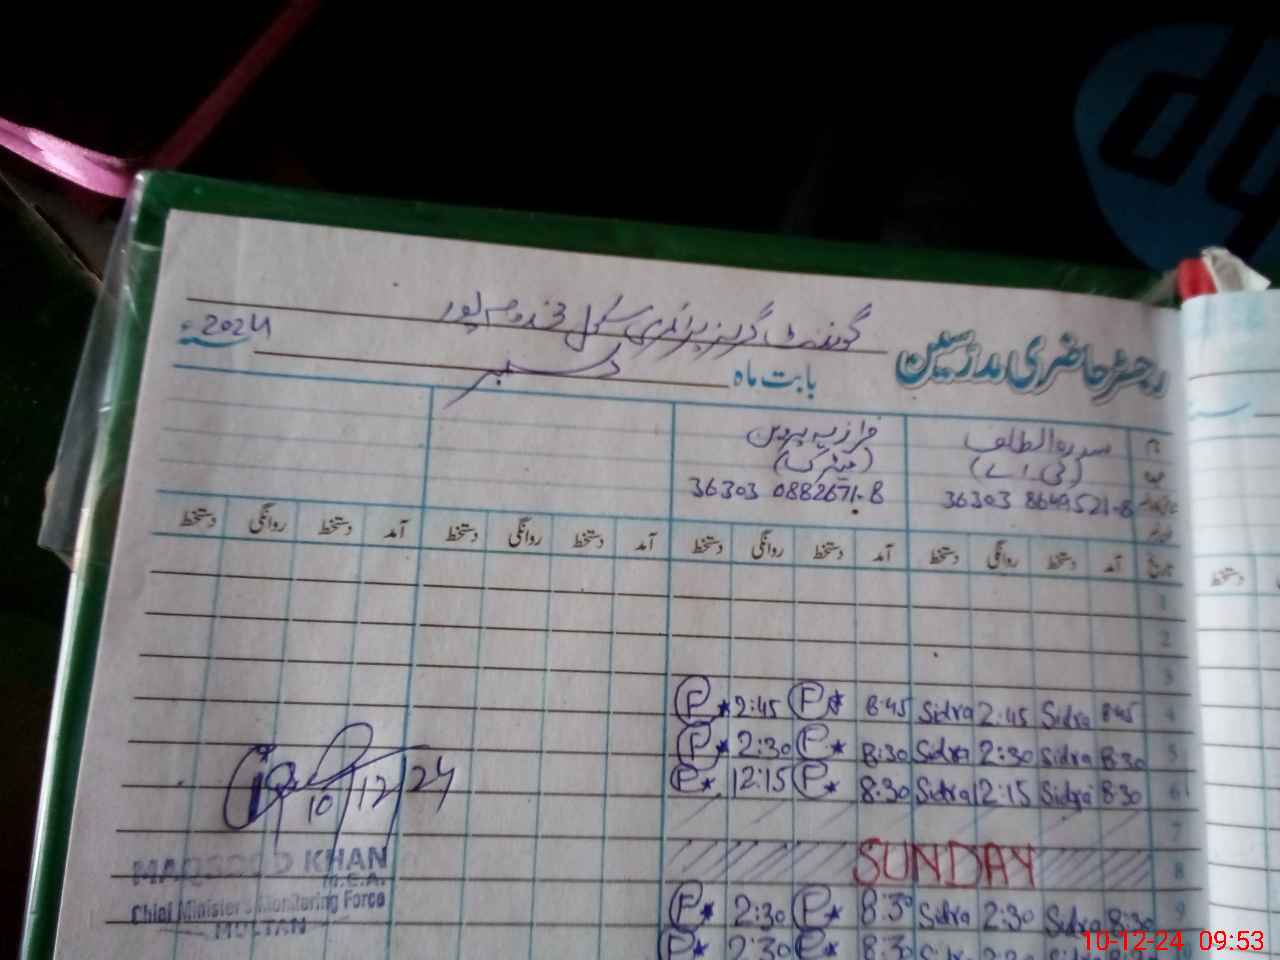 hp
گورنمنٹ گرلز پرائمری سکول مخدوم پور
رجسٹر حاضری مدرسین
بابت ماہ دسمبر 2024ء
نام سدرہ الطاف فرازیہ پروین
(بی اے) (میٹرک)
36303 8649521-8 36303 0882671-8
تاریخ آمد دستخط روانگی دستخط آمد دستخط روانگی دستخط آمد دستخط روانگی دستخط آمد دستخط روانگی دستخط
دستخط
1
2
3
4 8:45 Sidra 2:45 Sidra 8:45 P 2:45 P
5 8:30 Sidra 2:30 Sidra 8:30 P 2:30 P
6 8:30 Sidra 12:15 Sidra 8:30 P 12:15 P
7
8 SUNDAY
9 8:30 Sidra 2:30 Sidra 8:30 P 2:30 P
8:30 P 2:30 P
10/12/24
MAQSOOD KHAN
M.E.A.
Chief Minister's Monitoring Force
MULTAN
10-12-24 09:53